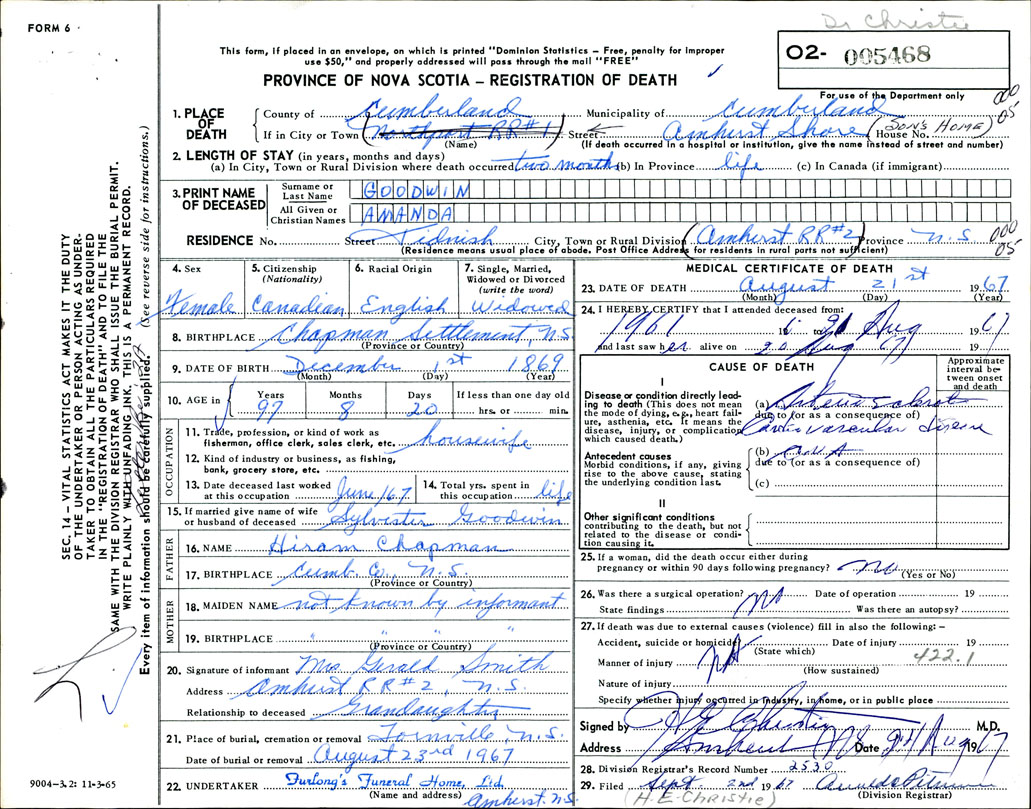 Dr Christie
FORM 6
This form, if placed in an envelope, on which is printed "Dominion Statistics – Free, penalty for improper
use $50," and properly addressed will pass through the mail "FREE"
O2- 005468
PROVINCE OF NOVA SCOTIA – REGISTRATION OF DEATH
For use of the Department only
000
05
1. PLACE OF DEATH
County of Cumberland Municipality of Cumberland
If in City or Town Northport RR#1 Street Amherst Shore House No. (Son's Home)
(Name) (If death occurred in a hospital or institution, give the name instead of street and number)
2. LENGTH OF STAY (in years, months and days)
(a) In City, Town or Rural Division where death occurred two months (b) In Province life (c) In Canada (if immigrant)
3. PRINT NAME OF DECEASED
Surname or Last Name GOODWIN
All Given or Christian Names AMANDA
RESIDENCE No. Street Tidnish City, Town or Rural Division (Amherst RR#2) Province N.S.
000
05
(Residence means usual place of abode. Post Office Address for residents in rural parts not sufficient)
4. Sex Female
5. Citizenship (Nationality) Canadian
6. Racial Origin English
7. Single, Married, Widowed or Divorced (write the word) Widowed
8. BIRTHPLACE Chapman Settlement, N.S.
(Province or Country)
9. DATE OF BIRTH December 1st 1869
(Month) (Day) (Year)
10. AGE in Years 97 Months 8 Days 20 If less than one day old hrs. or min.
OCCUPATION
11. Trade, profession, or kind of work as
fisherman, office clerk, sales clerk, etc. housewife
12. Kind of industry or business, as fishing,
bank, grocery store, etc.
13. Date deceased last worked
at this occupation June /67
14. Total yrs. spent in
this occupation life
15. If married give name of wife
or husband of deceased Sylvester Goodwin
FATHER
16. NAME Hiram Chapman
17. BIRTHPLACE Cumb. Co., N.S.
(Province or Country)
MOTHER
18. MAIDEN NAME not known by informant
19. BIRTHPLACE " " "
(Province or Country)
20. Signature of informant Mrs Gerald Smith
Address Amherst RR#2, N.S.
Relationship to deceased Grandaughter
21. Place of burial, cremation or removal N.S.
Date of burial or removal August 23rd 1967
22. UNDERTAKER Furlong's Funeral Home, Ltd.
(Name and address) Amherst. N.S.
MEDICAL CERTIFICATE OF DEATH
23. DATE OF DEATH August 21st 1967
(Month) (Day) (Year)
24. I HEREBY CERTIFY that I attended deceased from:
1961 to 21 Aug 1967
and last saw her alive on 20 Aug 67 19
CAUSE OF DEATH
Approximate interval between onset and death
I
Disease or condition directly leading to death (This does not mean
the mode of dying, e.g., heart failure, asthenia, etc. It means the
disease, injury, or complication
which caused death.)
(a)
due to (or as a consequence of)
vascular disease
Antecedent causes
Morbid conditions, if any, giving
rise to the above cause, stating
the underlying condition last.
(b)
due to (or as a consequence of)
(c)
II
Other significant conditions
contributing to the death, but not
related to the disease or condition causing it.
25. If a woman, did the death occur either during
pregnancy or within 90 days following pregnancy? No
(Yes or No)
26. Was there a surgical operation? No Date of operation 19
State findings Was there an autopsy?
27. If death was due to external causes (violence) fill in also the following: –
Accident, suicide or homicide Date of injury 19
(State which)
422.1
Manner of injury
(How sustained)
Nature of injury
Specify whether injury occurred in industry, in home, or in public place
Signed by H E Christie M.D.
Address Amherst NS Date Aug 1967
28. Division Registrar's Record Number 2530
29. Filed Sept 2nd 1967
(Division Registrar)
(H.E. Christie)
SEC. 14 – VITAL STATISTICS ACT MAKES IT THE DUTY
OF THE UNDERTAKER OR PERSON ACTING AS UNDERTAKER TO OBTAIN ALL THE PARTICULARS REQUIRED
IN THE "REGISTRATION OF DEATH" AND TO FILE THE
SAME WITH THE DIVISION REGISTRAR WHO SHALL ISSUE THE BURIAL PERMIT.
WRITE PLAINLY WITH UNFADING INK. THIS IS A PERMANENT RECORD.
Every item of information should be carefully supplied. (See reverse side for instructions.)
9004–3.2: 11-3-65